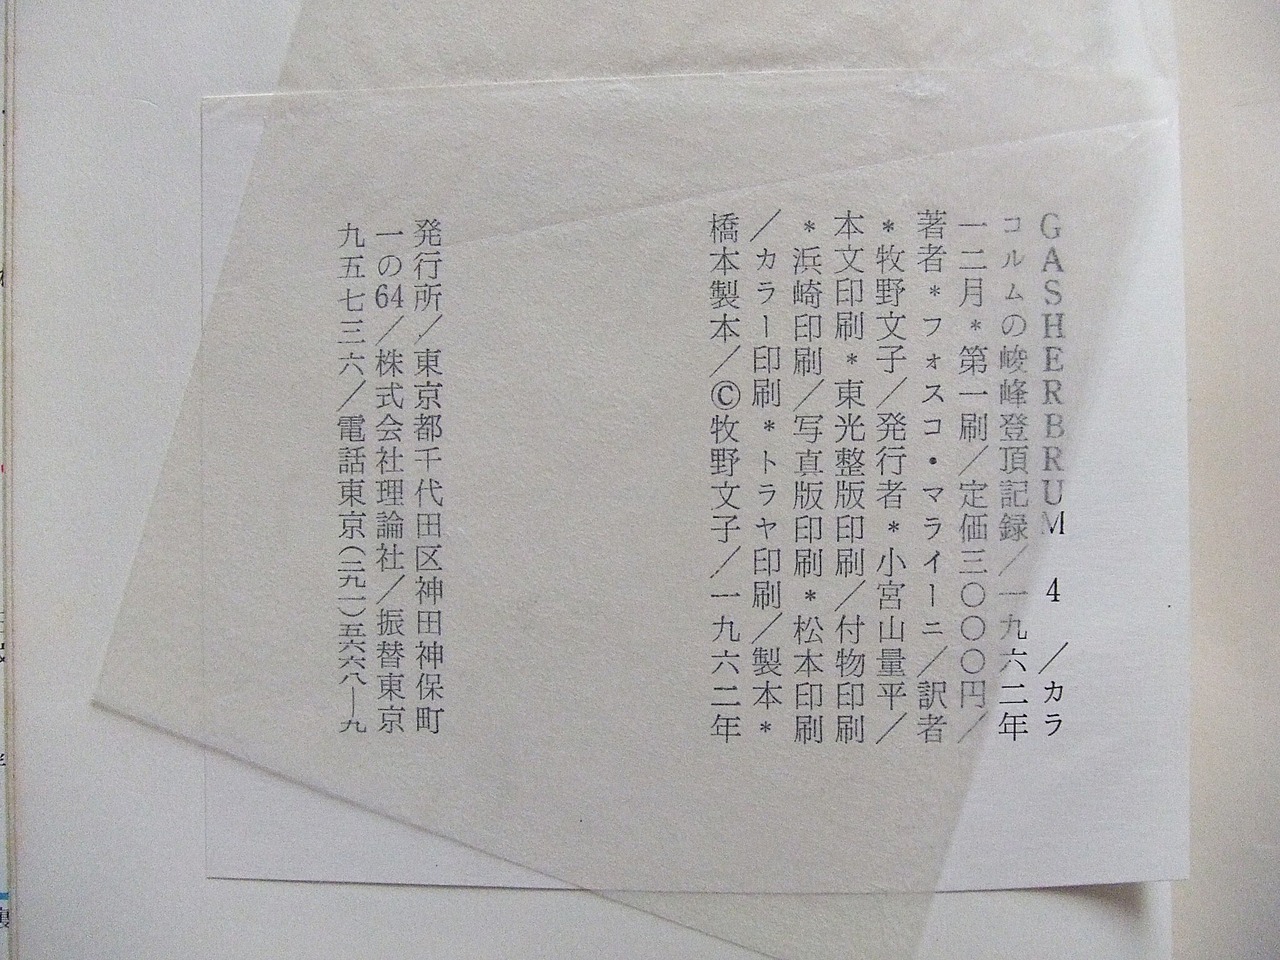 GASHERBRUM 4 ／カラ
コルムの峻峰登頂記録／一九六二年
一二月＊第一刷／定価三〇〇〇円／
著者＊フォスコ・マライーニ／訳者
＊牧野文子／発行者＊小宮山量平／
本文印刷＊東光整版印刷／付物印刷
＊浜崎印刷／写真版印刷＊松本印刷
／カラー印刷＊トラヤ印刷／製本＊
橋本製本／©牧野文子／一九六二年
発行所／東京都千代田区神田神保町
一の64／株式会社理論社／振替東京
九五七三六／電話東京(二九一)五六六八―九